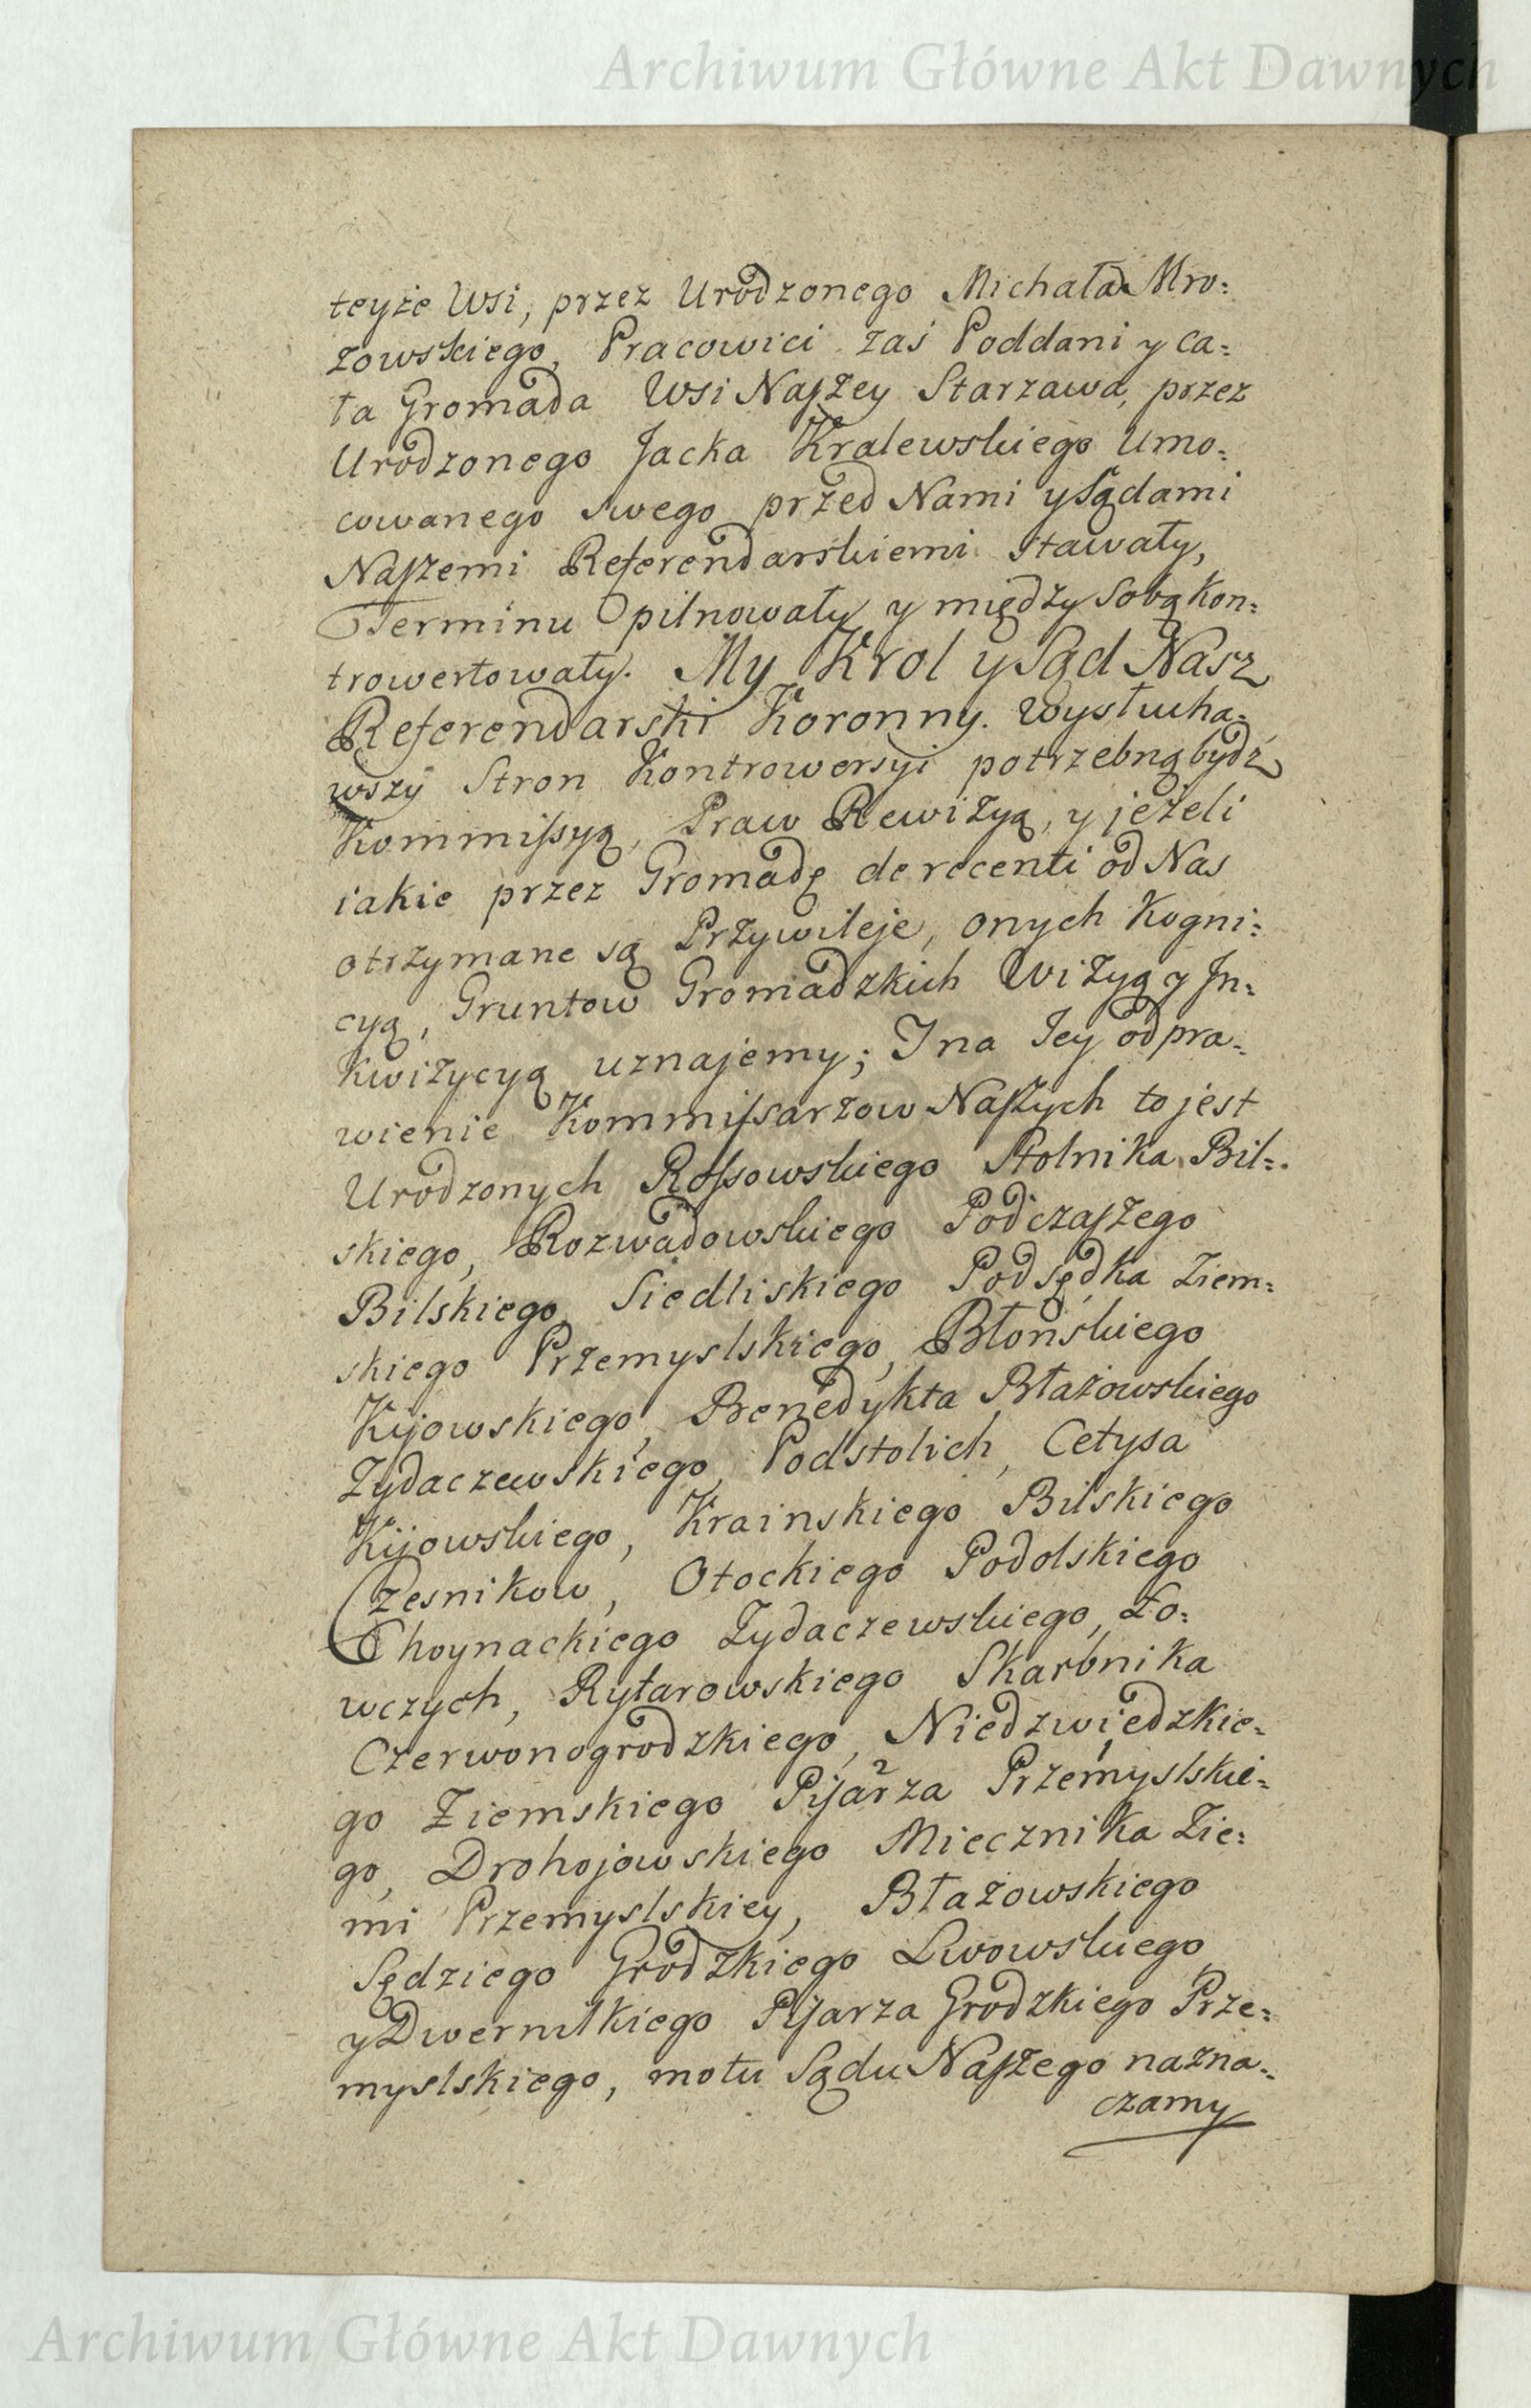 Archiwum Główne Akt Dawnych
teyże Wsi, przez Urodzonego Michała Mro:
zowskiego, Pracowici zaś Poddani y ca:
ła Gromada Wsi Naſzey Starzawa, przez
Urodzonego Jacka Kralewskiego Umo:
cowanego swego przed Nami y Sądami
Naſzemi Referendarskiemi stawały,
Terminu pilnowały y między sobą kon:
trowertowały. My Krol y Sąd Nasz
Referendarski Koronny. Wysłucha:
wszy Stron Kontrowersyi potrzebną bydź
Kommiſsyą, Praw Rewizyą, y jeżeli
iakie przez Gromadę de recenti od Nas
otrzymane są Przywileje, onych Kogni:
cyą, Gruntow Gromadzkich Wizyą y In:
kwizycyą uznajemy; I na Jey odpra:
wienie Kommiſsarzow Naſzych to jest
Urodzonych Roſsowskiego Stolnika Bil:
skiego, Rozwadowskiego Podczaſzego
Bilskiego, Siedliskiego Podsędka Ziem:
skiego Przemyslskiego, Błonskiego
Kijowskiego, Benedykta Błażowskiego
Zydaczewskiego, Podstolich, Cetysa
Kijowskiego, Krainskiego Bilskiego
Czesnikow, Otockiego Podolskiego
Choynackiego Zydaczewskiego, Ło:
wczych, Rytarowskiego Skarbnika
Czerwonogrodzkiego, Niedzwiedzkie:
go Ziemskiego Piſarza Przemyslskie:
go, Drohojowskiego Miecznika Zie:
mi Przemyslskiey, Błażowskiego
Sędziego Grodzkiego Lwowskiego
y Dwernickiego Piſarza Grodzkiego Prze:
myslskiego, motu Sądu Naſzego nazna:
czamy
Archiwum Główne Akt Dawnych